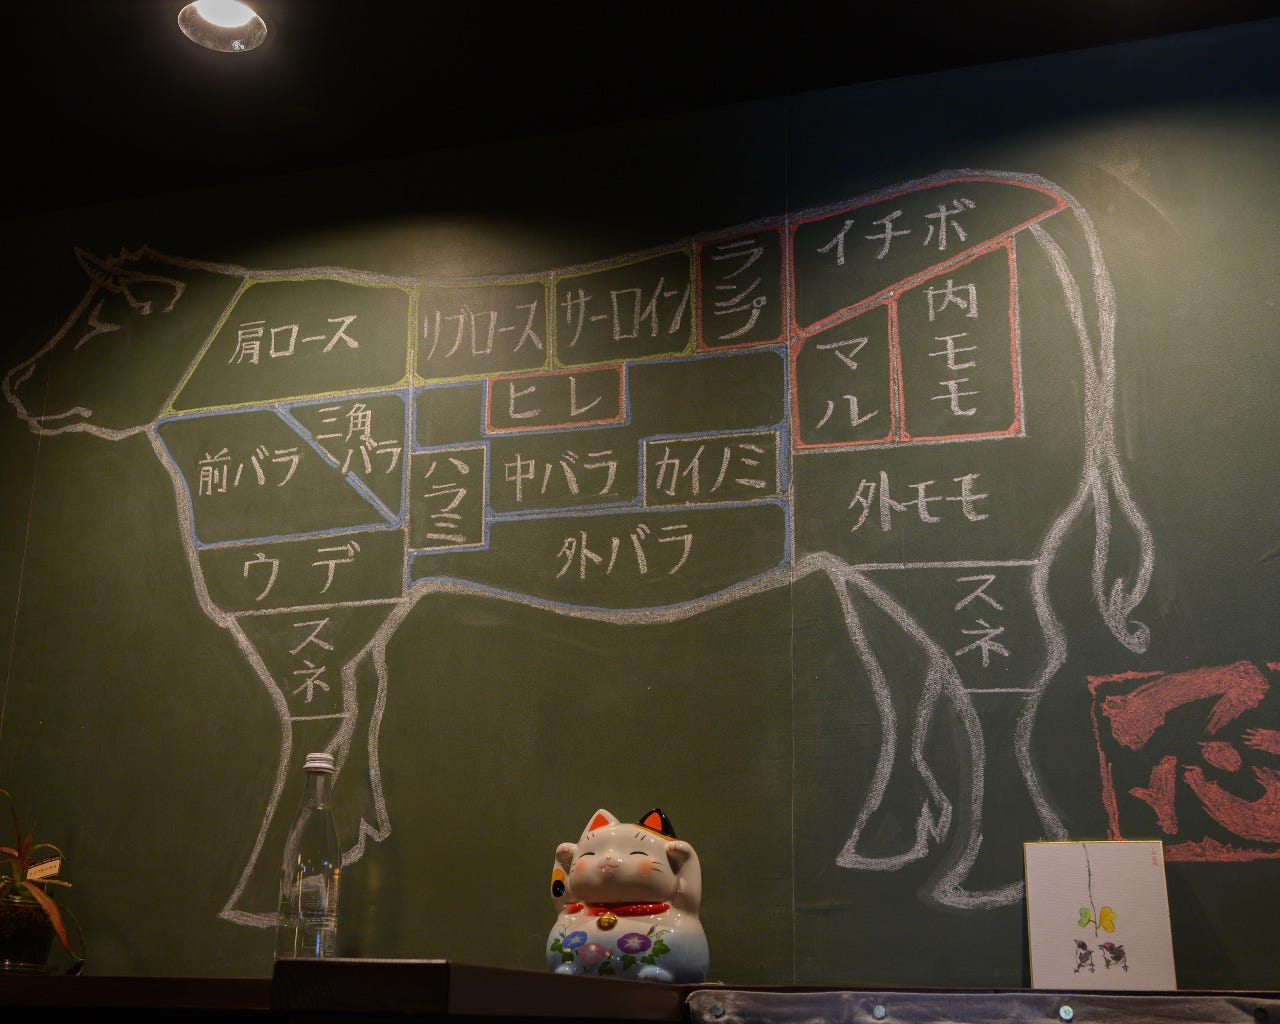 肩ロース
リブロース
サーロイン
ランプ
イチボ
ヒレ
マル
内モモ
前バラ
三角
バラ
ハラミ
中バラ
カイノミ
外モモ
ウデ
外バラ
スネ
スネ